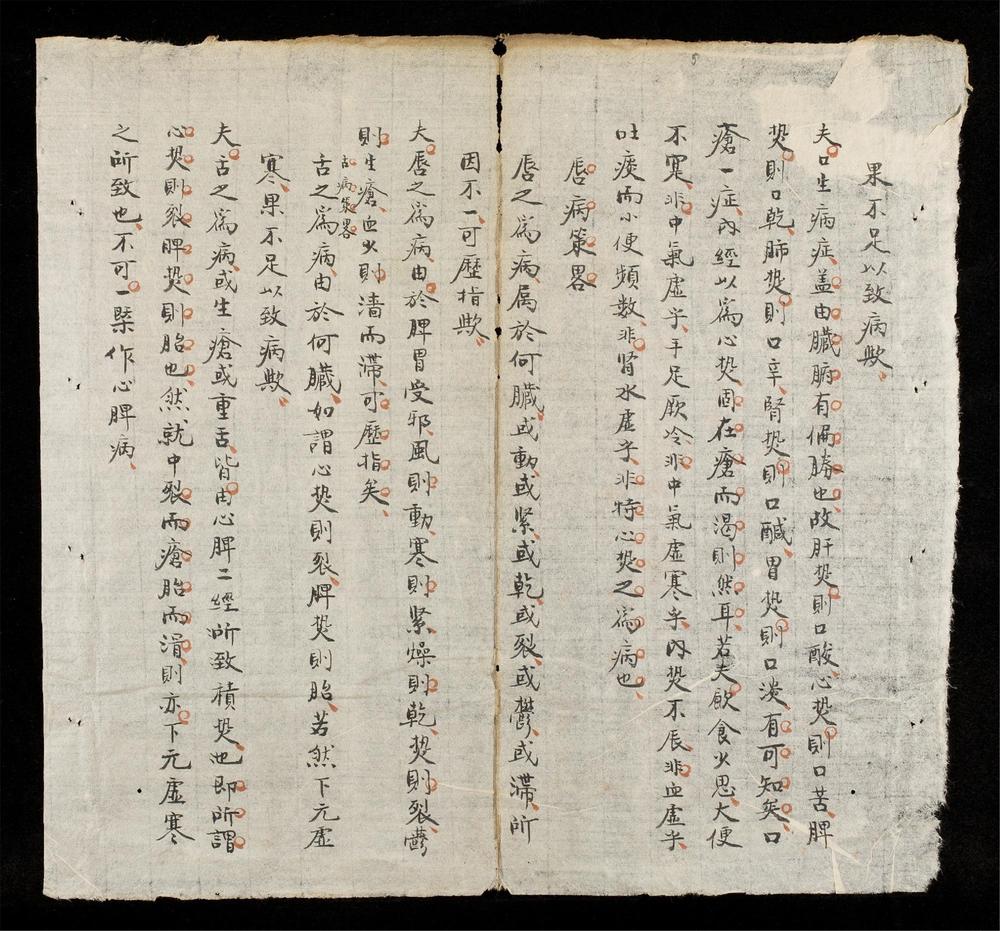 果不足以致病欤、
夫口生病症盖由臓腑有偏勝也故肝热則口酸、心热則口苦、脾
热則口乾、肺热則口辛、腎热則口醎、胃热則口淡、有可知矣、口
瘡一症、內經以爲心热固在瘡而渴則然耳、若夫飲食少思大便
不寔、非中氣虚乎、手足厥冷、非中氣虛寒乎、內热不辰、非血虛乎
吐痰而小便頻数、非腎水虚乎、非特心热之爲病也、
唇病策畧
唇之爲病、属於何臓、或動、或緊、或乾、或裂、或鬱、或滞、所
因不一、可歷指欤、
夫唇之爲病、由於脾胃受邪、風則動、寒則緊、燥則乾、热則裂、欝
則生瘡、血少則瀒而滞、可歷指矣、
舌病策畧
舌之爲病、由於何臓、如謂心热則裂、脾热則胎、若然下元虛
寒、果不足以致病欤、
夫舌之爲病、或生瘡或重舌、皆由心脾二經所致積热也、即所謂
心热則裂脾热則胎也、然就中裂而瘡胎而滑、則亦下元虛寒
之所致也、不可一槩作心脾病、